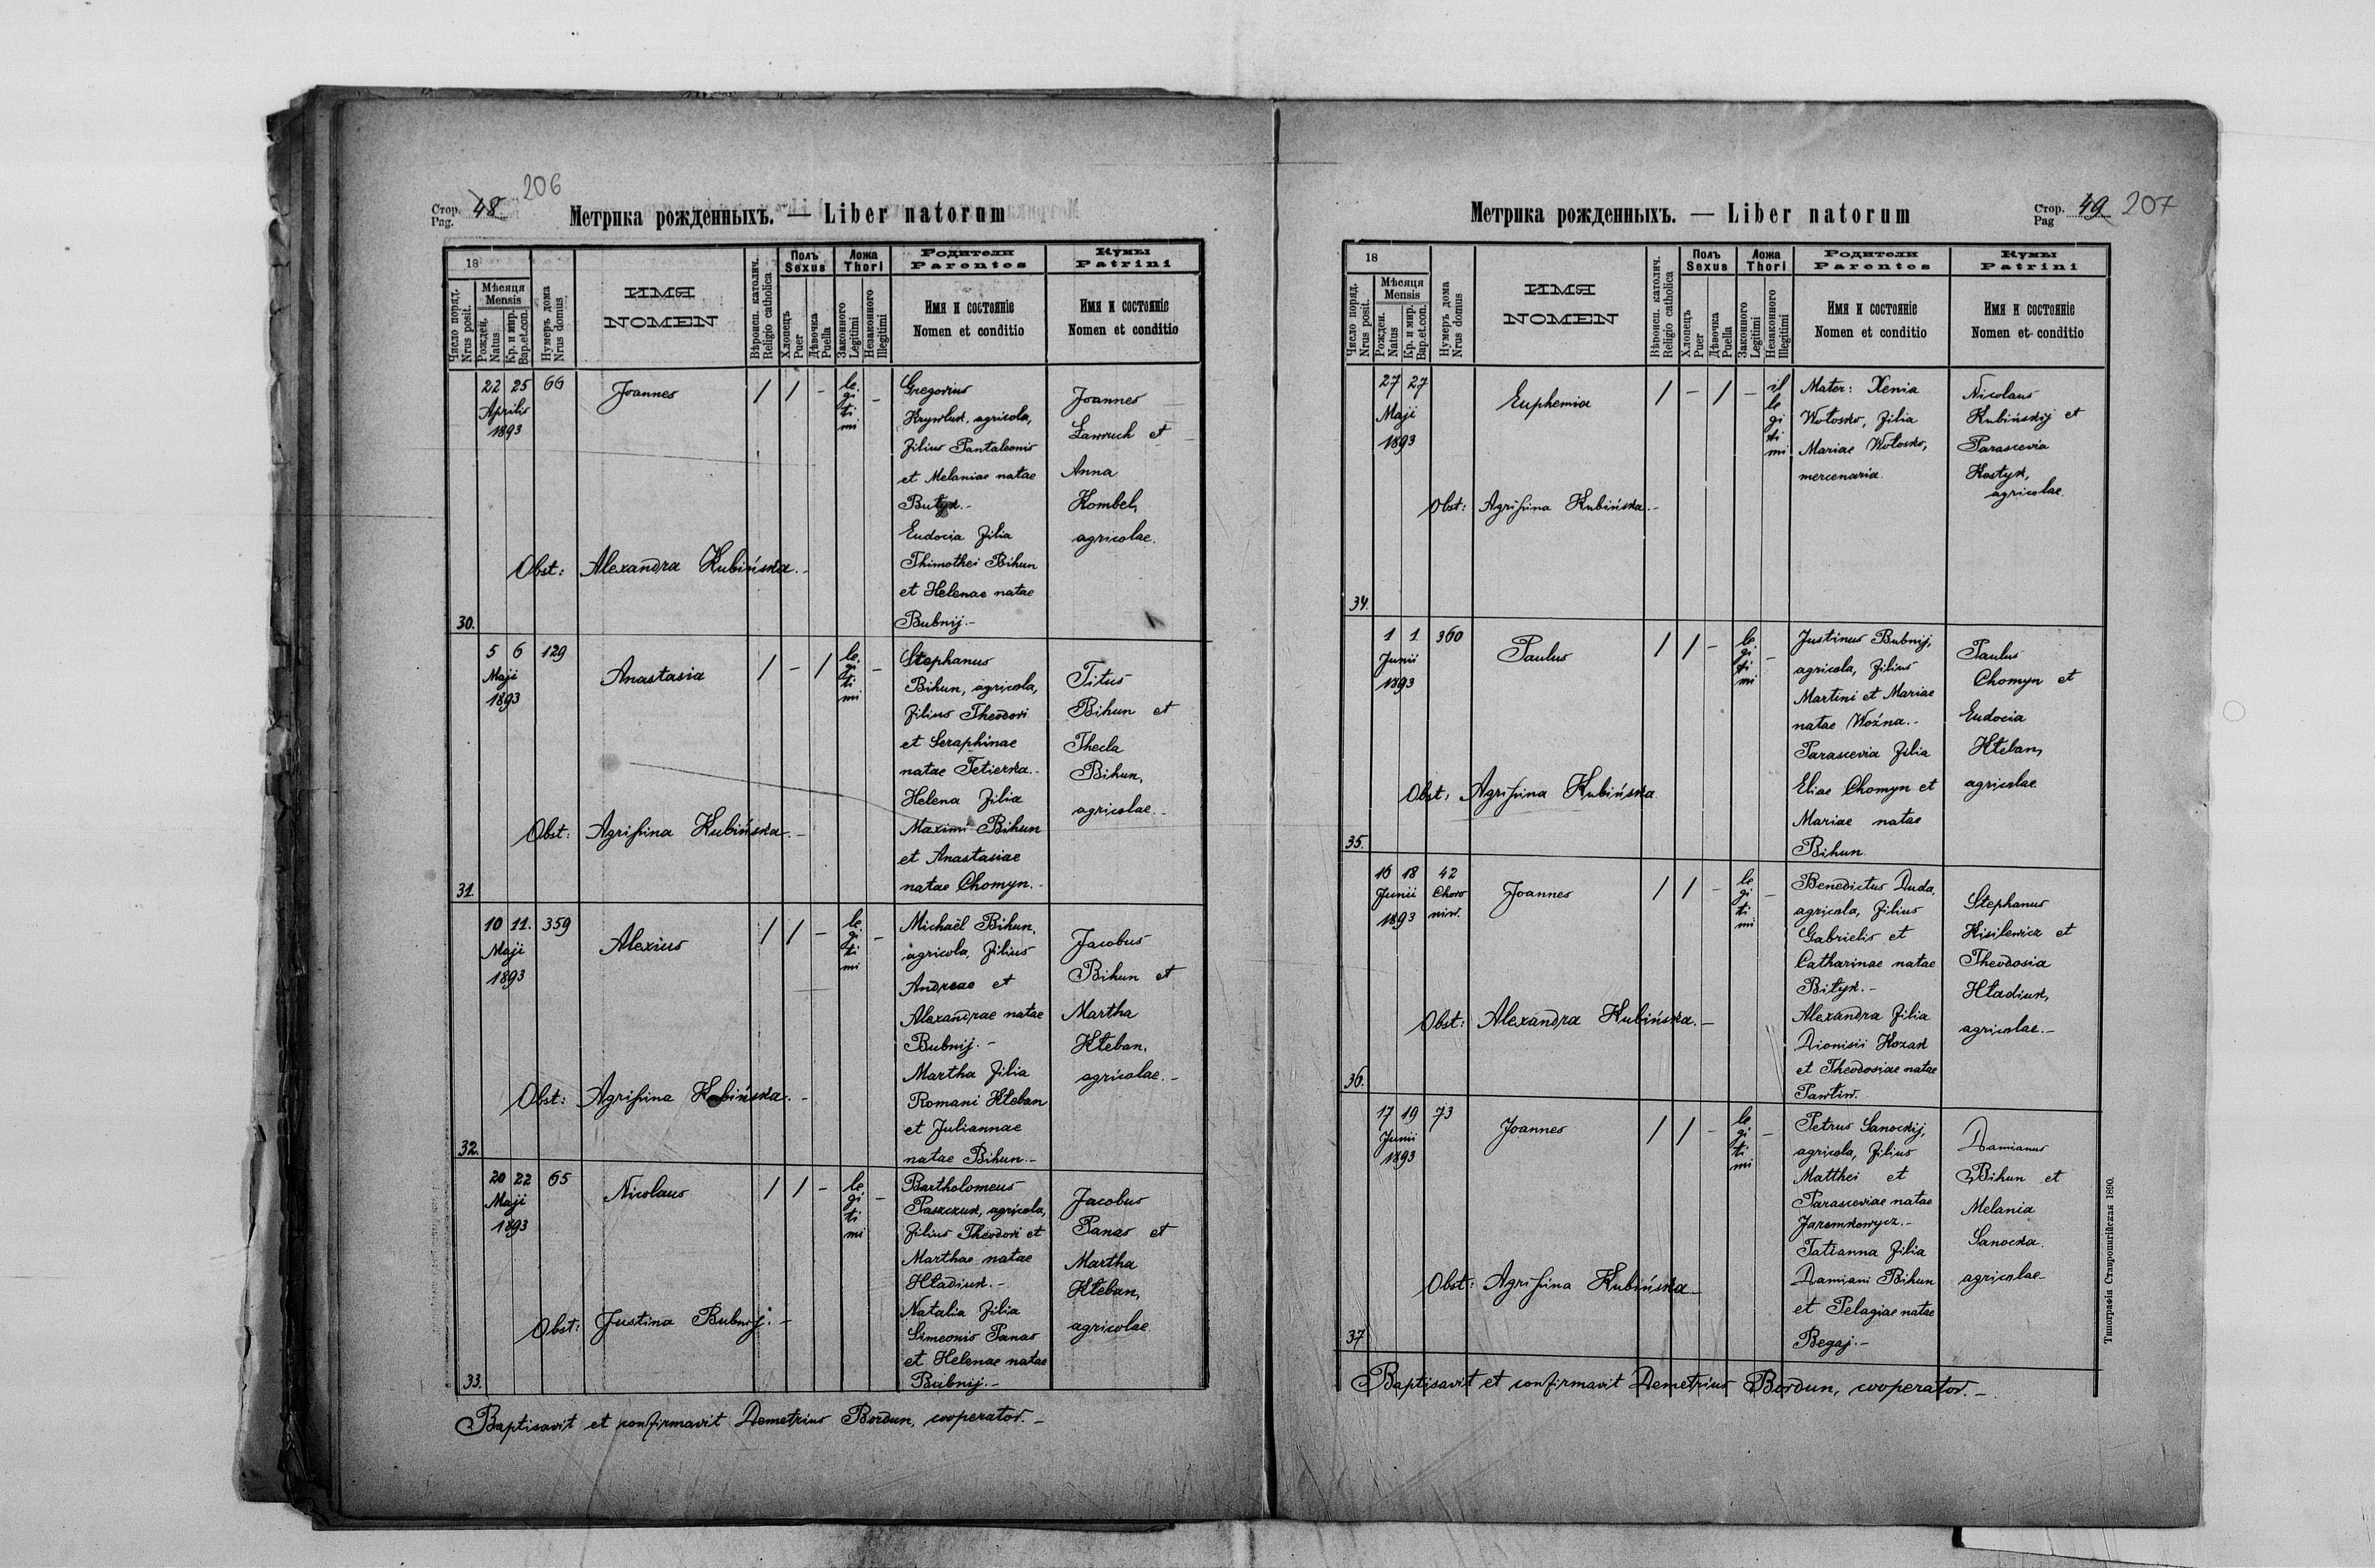 Стор. Pag. 48 206
Метрика рожденныхъ. — Liber natorum
18
Число поряд. Nrus posit.
Мѣсяця Mensis
Рожден. Natus
Кр. и мир. Bap.et.con.
Нумеръ дома Nrus domus
ИМЯ
NOMEN
Вѣроисп. католич. Religio catholica
Полъ Sexus
Хлопецъ Puer
Дѣвочка Puella
Ложа Thori
Законного Legitimi
Незаконного Illegitimi
Родители
Parentes
Имя и состоянiе
Nomen et conditio
Кумы
Patrini
Имя и состоянiе
Nomen et conditio
30.
22 25 66
Aprilis
1893
Joannes
/ / - legitimi -
Gregorius
Krywluk, agricola,
filius Pantaleonis
et Melaniae natae
Butyk.-
Eudocia filia
Thimothei Bihun
et Helenae natae
Bubnij.-
Joannes
Ławruch et
Anna
Kombel,
agricolae.
Obst: Alexandra Kubińska.-
31.
5 6 129
Maji
1893
Anastasia
/ - / legitimi -
Stephanus
Bihun, agricola,
filius Theodori
et Seraphinae
natae Tetierka.-
Helena filia
Maximi Bihun
et Anastasiae
natae Chomyn.-
Titus
Bihun et
Thecla
Bihun,
agricolae.-
Obst: Agrifina Kubińska.-
32.
10 11. 359
Maji
1893
Alexius
/ / - legitimi -
Michaël Bihun,
agricola, filius
Andreae et
Alexandrae natae
Bubnij.-
Martha filia
Romani Hteban
et Juliannae
natae Bihun.-
Jacobus
Bihun et
Martha
Hteban,
agricolae.-
Obst: Agrifina Kubińska.-
33.
20 22 65
Maji
1893
Nicolaus
/ / - legitimi -
Bartholomeus
Paszczuk, agricola,
filius Theodori et
Marthae natae
Hładiuk.-
Natalia filia
Simeonis Panas
et Helenae natae
Bubnij.-
Jacobus
Panas et
Martha
Hteban,
agricolae.
Obst: Justina Bubnij.-
Baptisavit et confirmavit Demetrius Bordun, cooperator.-
Метрика рожденныхъ. — Liber natorum
Стор. Pag 49 207
18
Число поряд. Nrus posit.
Мѣсяця Mensis
Рожден. Natus
Кр. и мир. Bap.et.con.
Нумеръ дома Nrus domus
ИМЯ
NOMEN
Вѣроисп. католич. Religio catholica
Полъ Sexus
Хлопецъ Puer
Дѣвочка Puella
Ложа Thori
Законного Legitimi
Незаконного Illegitimi
Родители
Parentes
Имя и состоянiе
Nomen et conditio
Кумы
Patrini
Имя и состоянiе
Nomen et conditio
34.
27 27
Maji
1893
Euphemia
/ - / - illegitimi
Mater: Xenia
Wołosko, filia
Mariae Wołosko,
mercenaria.
Nicolaus
Kubińskij et
Parascevia
Kostyk,
agricolae.
Obst: Agrifina Kubińska.-
35.
1 1 360
Junii
1893
Paulus
/ / - legitimi -
Justinus Bubnij,
agricola, filius
Martini et Mariae
natae Woźna.-
Parascevia filia
Eliae Chomyn et
Mariae natae
Bihun.
Paulus
Chomyn et
Eudocia
Hteban,
agricolae.
Obst: Agrifina Kubińska.
36.
16 18 42
Junii Choro
1893 niw.
Joannes
/ / - legitimi -
Benedictus Duda,
agricola, filius
Gabrielis et
Catharinae natae
Bityk.-
Alexandra filia
Dionisii Kozak
et Theodosiae natae
Pawliw.
Stephanus
Kisilewicz et
Theodosia
Hładiuk,
agricolae.-
Obst: Alexandra Kubińska.-
37
17 19 73
Junii
1893
Joannes
/ / - legitimi -
Petrus Sanockij,
agricola, filius
Matthei et
Parasceviae natae
Jaremkowycz.-
Tatianna filia
Damiani Bihun
et Pelagiae natae
Begaj.-
Damianus
Bihun et
Melania
Sanocka.
agricolae-
Obst: Agrifina Kubińska-
Baptisavit et confirmavit Demetrius Bordun, cooperator.-
Типографія Ставропигійская 1890.